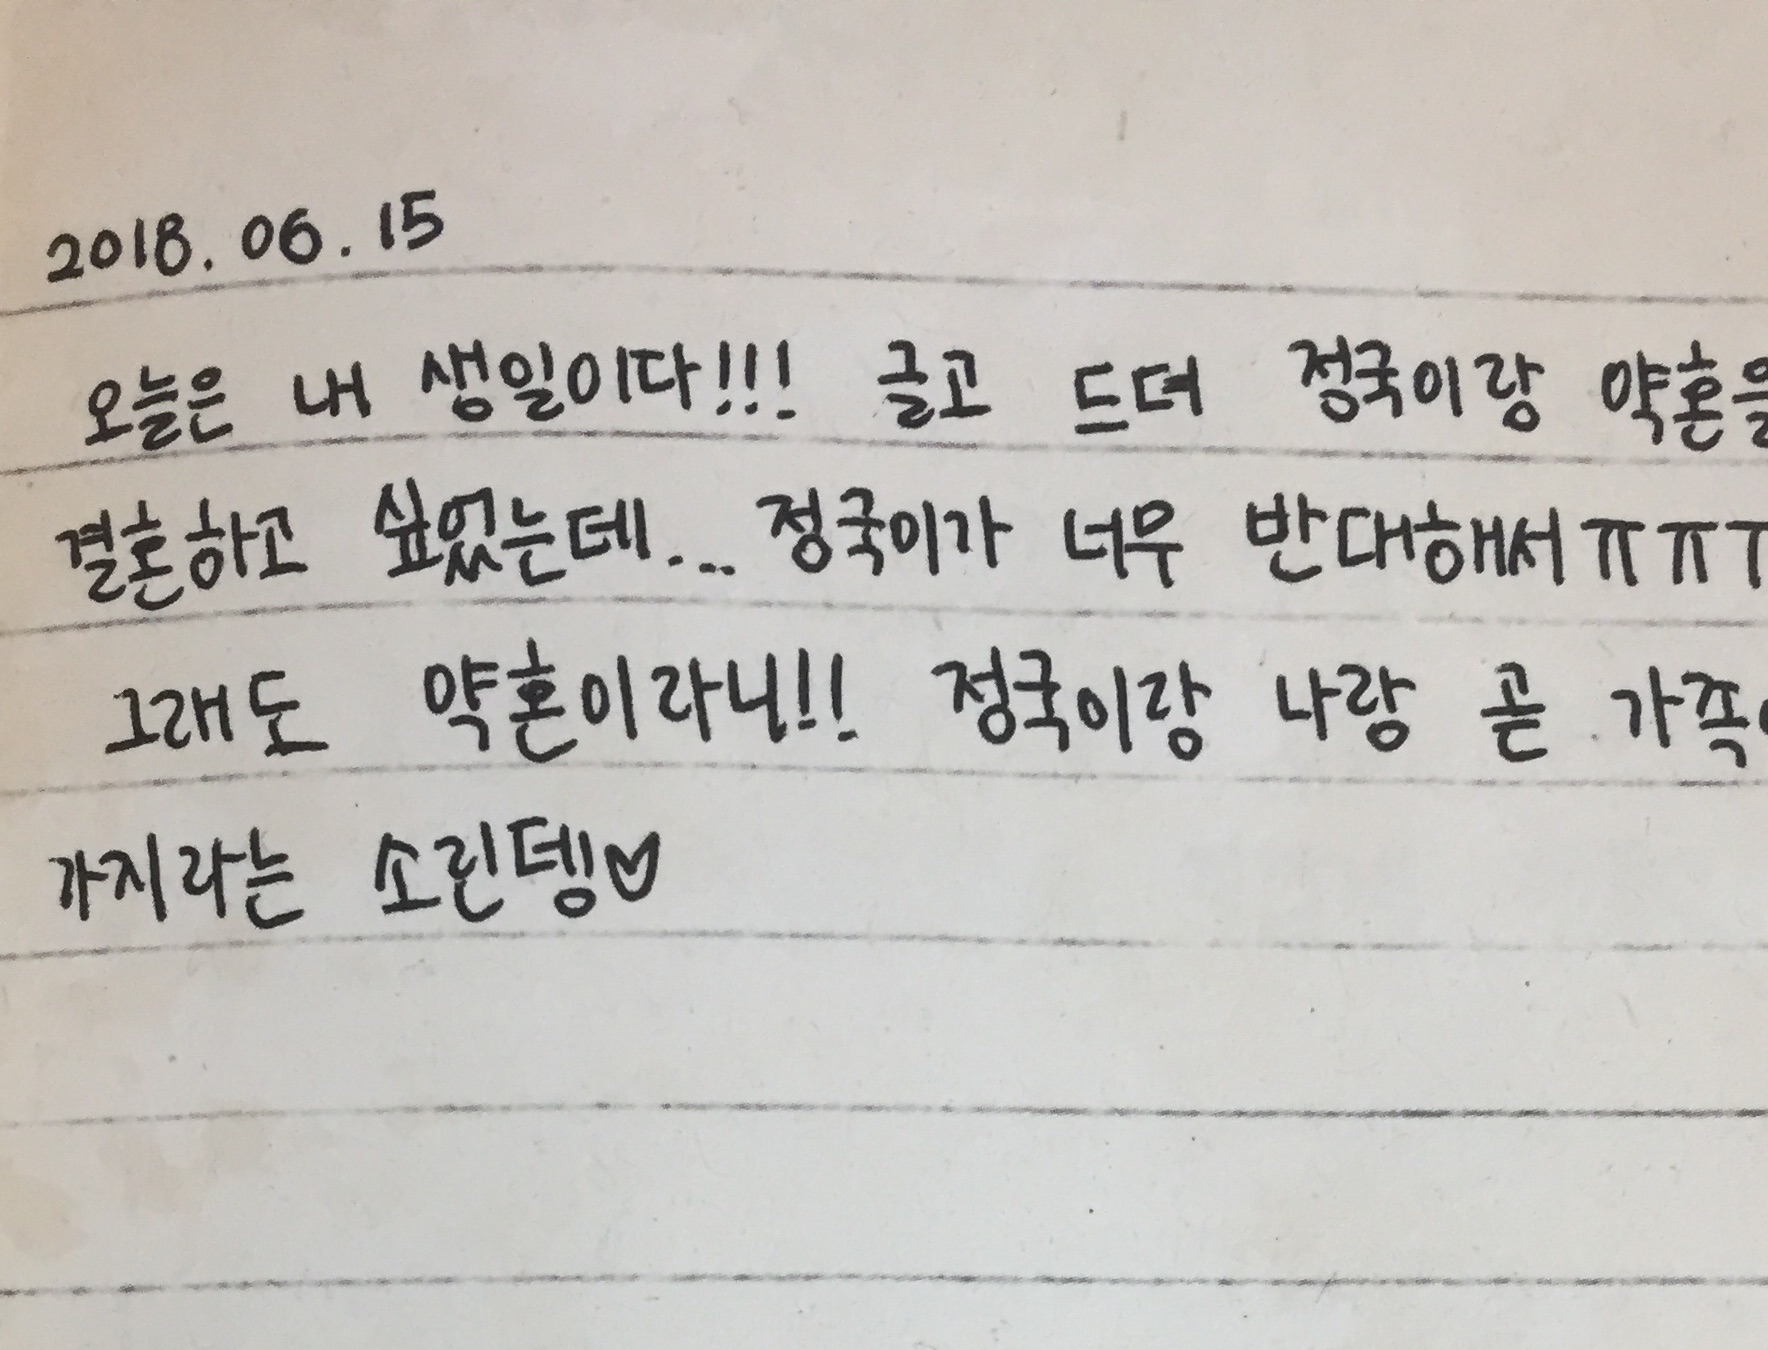 2018. 06. 15
오늘은 내 생일이다!!! 글고 드뎌 정국이랑 약혼을
결혼하고 싶었는데... 정국이가 너무 반대해서ㅠㅠㅠ
그래도 약혼이라니!! 정국이랑 나랑 곧 가족
가지라는 소린뎅♡